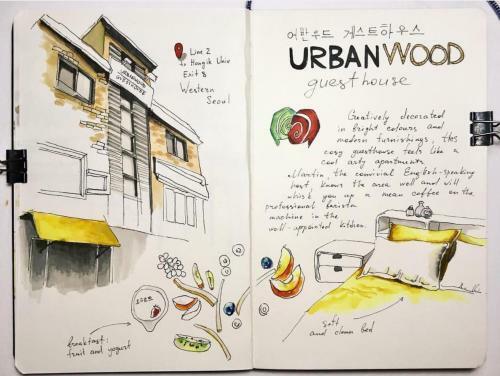 Line 2
Hongik Univ
Exit 8
Western
Seoul
URBANWOOD
GUESTHOUSE
breakfast:
fruit and yogurt
어반우드 게스트하우스
URBANWOOD
guesthouse
Creatively decorated
in bright colours and
modern furnishings, this
cosy guesthouse feels like a
cool arty apartments.
Martin, the convivial English-speaking
host, knows the area well and will
whisk you up a mean coffee on the
professional barista
machine in the
well-appointed kitchen.
soft
and clean bed